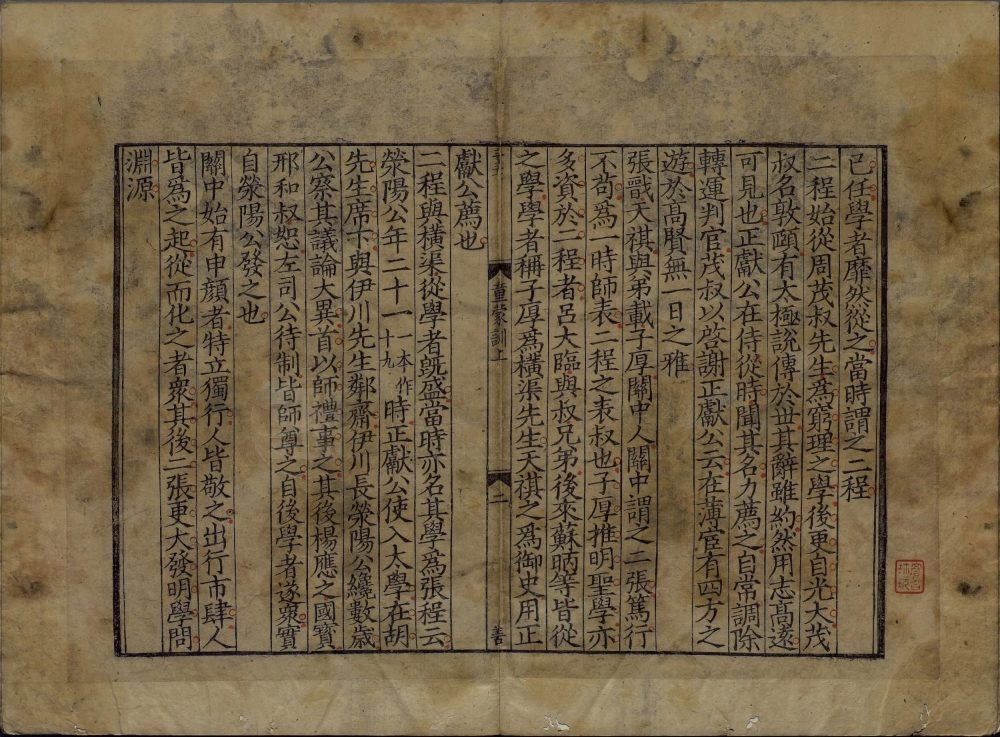 已任學者靡然從之當時謂之二程
二程始從周茂叔先生爲窮理之學後更自光大茂
叔名敦頤有太極說傳於世其辭雖約然用志髙遠
可見也正獻公在侍從時聞其名力薦之自常調除
轉運判官茂叔以啓謝正獻公云在薄宦有四方之
遊於高賢無一日之雅
張戩天祺與弟載子厚關中人關中謂之二張篤行
不苟爲一時師表二程之表叔也子厚推明聖學亦
多資於二程者呂大臨與叔兄弟後來蘇昞等皆從
之學學者稱子厚爲橫渠先生天祺之爲御史用正
獻公薦也
童蒙訓上
二
善
二程與橫渠從學者旣盛當時亦名其學爲張程云
滎陽公年二十一一本作十九時正獻公使入太學在胡
先生席下與伊川先生鄰齋伊川長滎陽公纔數歲
公察其議論大異首以師禮事之其後楊應之國寶
邢和叔恕左司公待制皆師尊之自後學者遂衆實
自滎陽公發之也
關中始有申顔者特立獨行人皆敬之出行市肆人
皆爲之起從而化之者衆其後二張更大發明學問
淵源